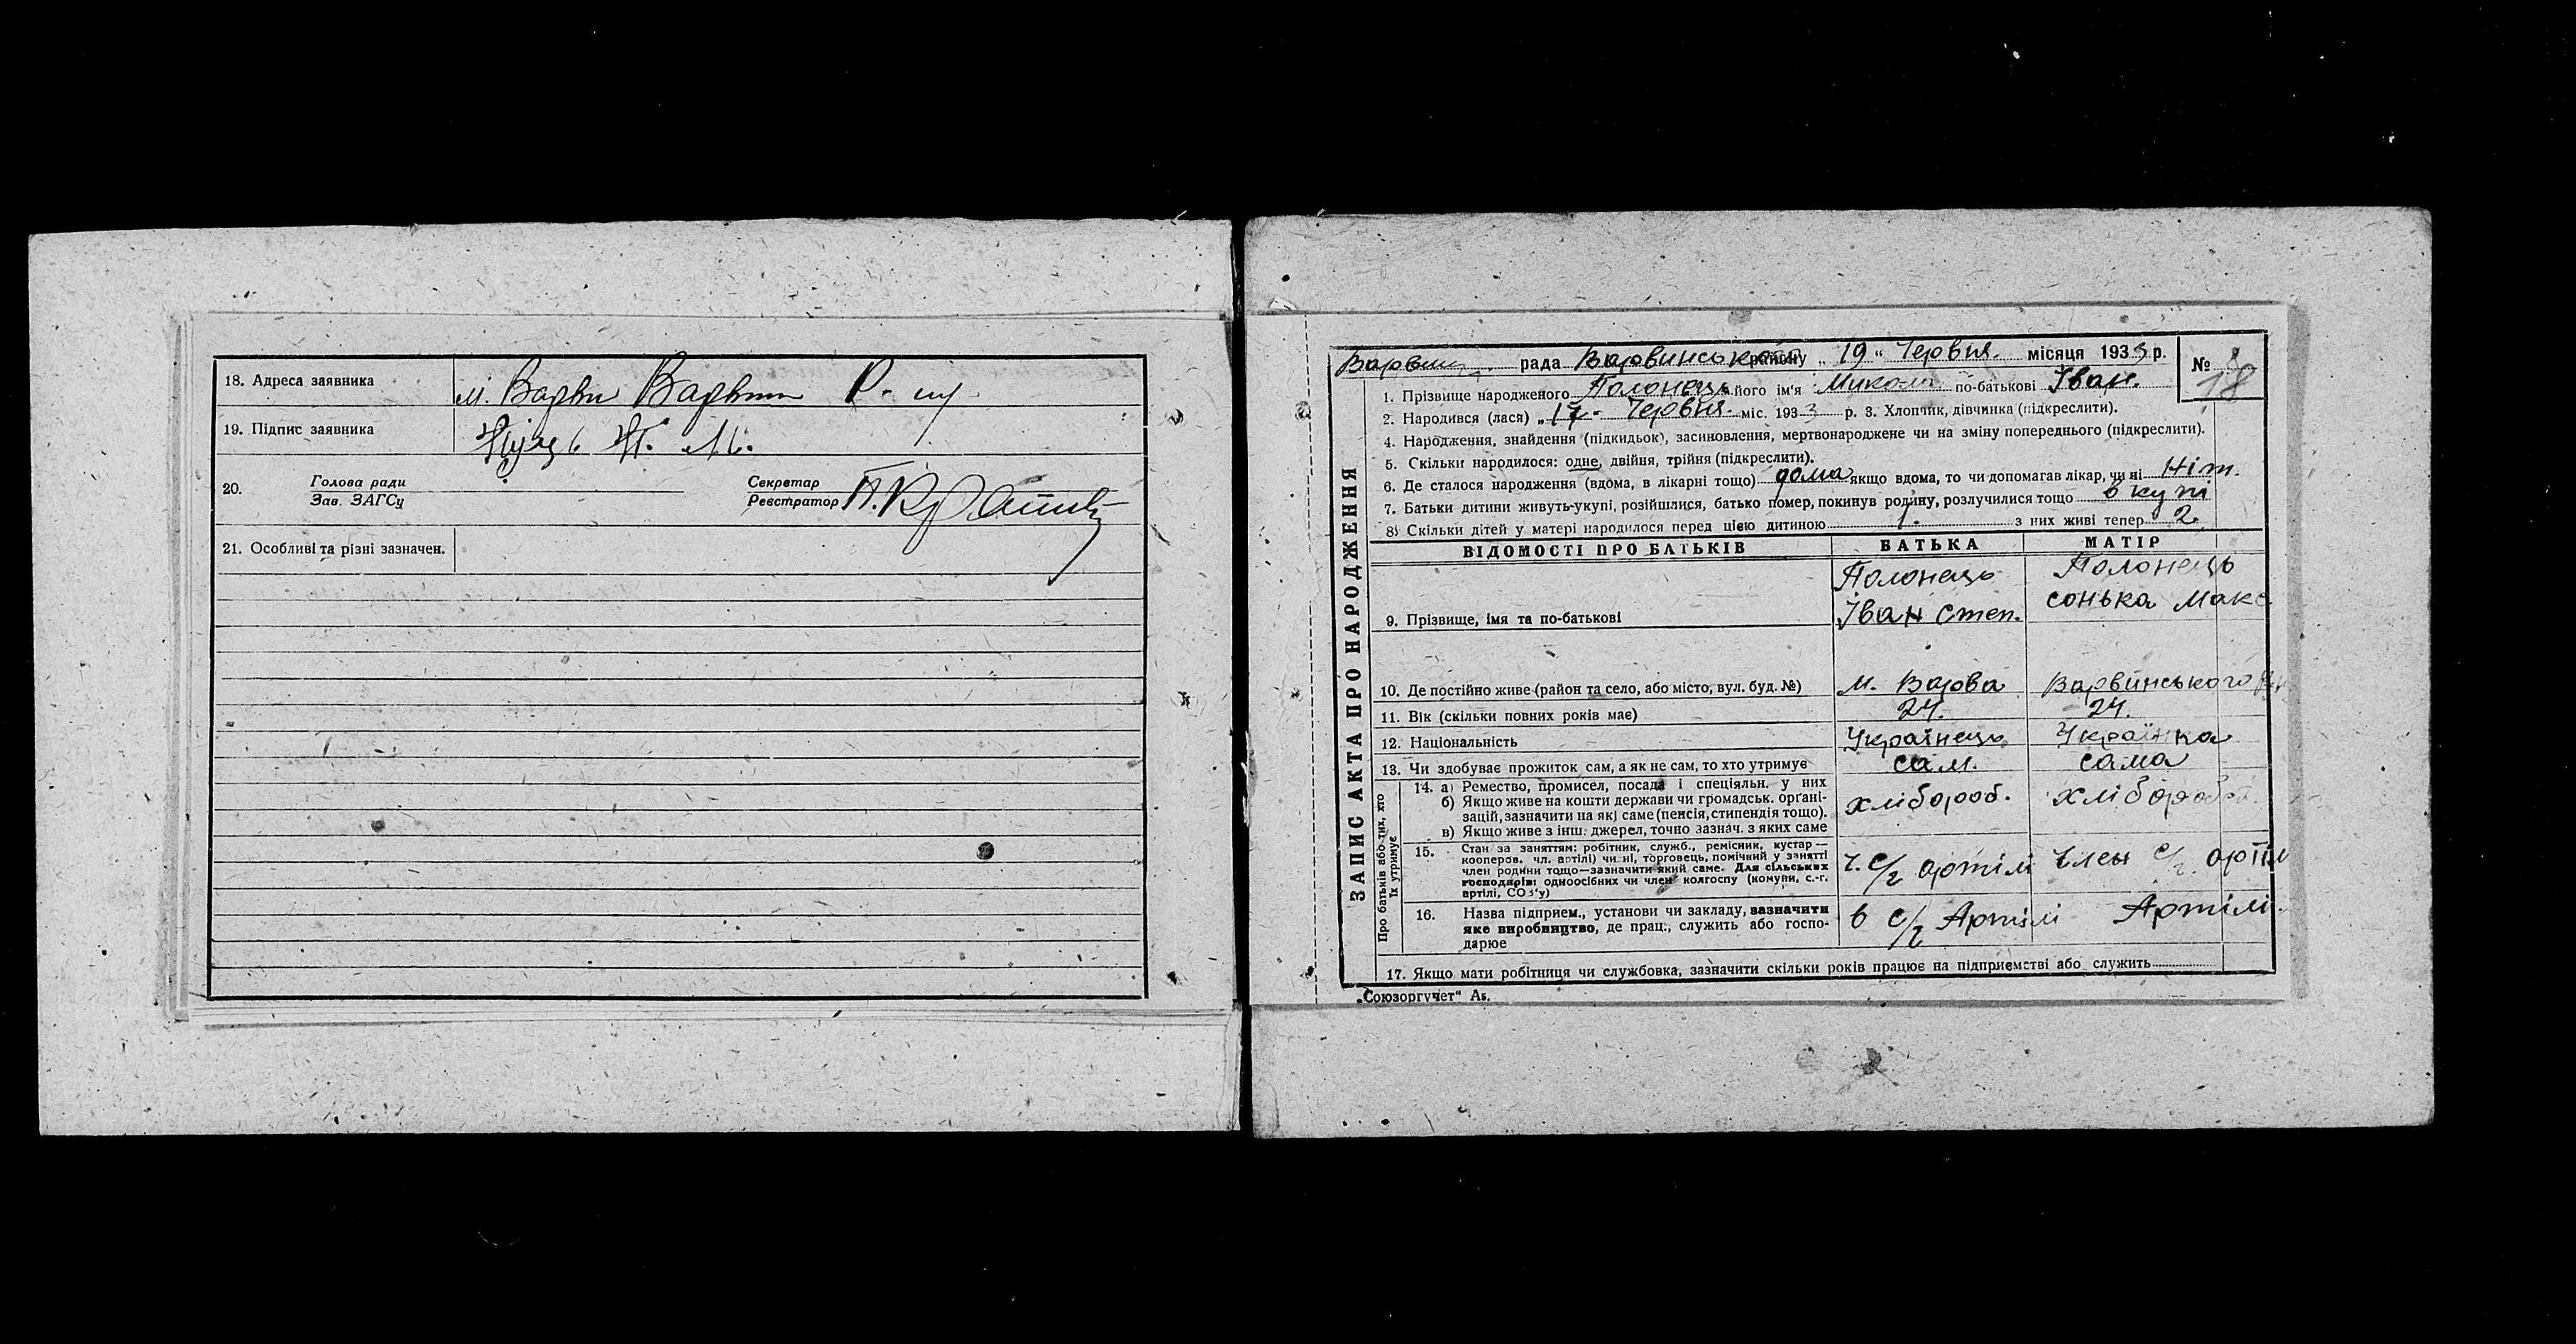 18. Адреса заявника м. Варви Варвин Р-ну
19. Підпис заявника
20. Голова ради
Зав. ЗАГСу
Секретар
Реєстратор
21. Особливі та різні зазначен.
ЗАПИС АКТА ПРО НАРОДЖЕННЯ
рада Варвинського району „19“ Червня місяця 1933 р.
№ 18
1. Прізвище народженого Полонець його ім'я Микола по-батькові Іван.
2. Народився (лася) „17" Червня міс. 1933 р. 3. Хлопчик, дівчинка (підкреслити).
4. Народження, знайдення (підкидьок), засиновлення, мертвонароджене чи на зміну попереднього (підкреслити).
5. Скільки народилося: одне, двійня, трійня (підкреслити).
6. Де сталося народження (вдома, в лікарні тощо) дома якщо вдома, то чи допомагав лікар, чи ні Ніт.
7. Батьки дитини живуть-укупі, розійшлися, батько помер, покинув родину, розлучилися тощо вкупі
8) Скільки дітей у матері народилося перед цією дитиною 1. з них живі тепер 2.
ВІДОМОСТІ ПРО БАТЬКІВ БАТЬКА МАТІР
9. Прізвище, імя та по-батькові Полонець Іван Степ. Полонець сонька Макс
10. Де постійно живе (район та село, або місто, вул. буд. №) м. Варва Варвинського
11. Вік (скільки повних років має) 24. 24.
12. Національність Українець Українка
13. Чи здобуває прожиток сам, а як не сам, то хто утримує сам. сама
Про батьків або тих, хто їх утримує
14. а) Ремество, промисел, посада і спеціяльн. у них
б) Якщо живе на кошти держави чи громадськ. орґані-
зацій, зазначити на які саме (пенсія, стипендія тощо).
в) Якщо живе з інш. джерел, точно зазнач. з яких саме
хлібороб. хлібороб
15. Стан за заняттям: робітник, служб., ремісник, кустар —
кооперов. чл. артілі) чи ні, торговець, помічний у занятті
член родини тощо—зазначити який саме. Для сільських
господарів: одноосібних чи член колгоспу (комуни, с.-г.
артілі, СОЗ'у)
ч. с/г артілі Член с/г. артіл
16. Назва підприєм., установи чи закладу, зазначити
яке виробництво, де прац., служить або госпо-
дарює
в с/г Артілі Артілі.
17. Якщо мати робітниця чи службовка, зазначити скільки років працює на підприємстві або служить
„Союзоргучет"